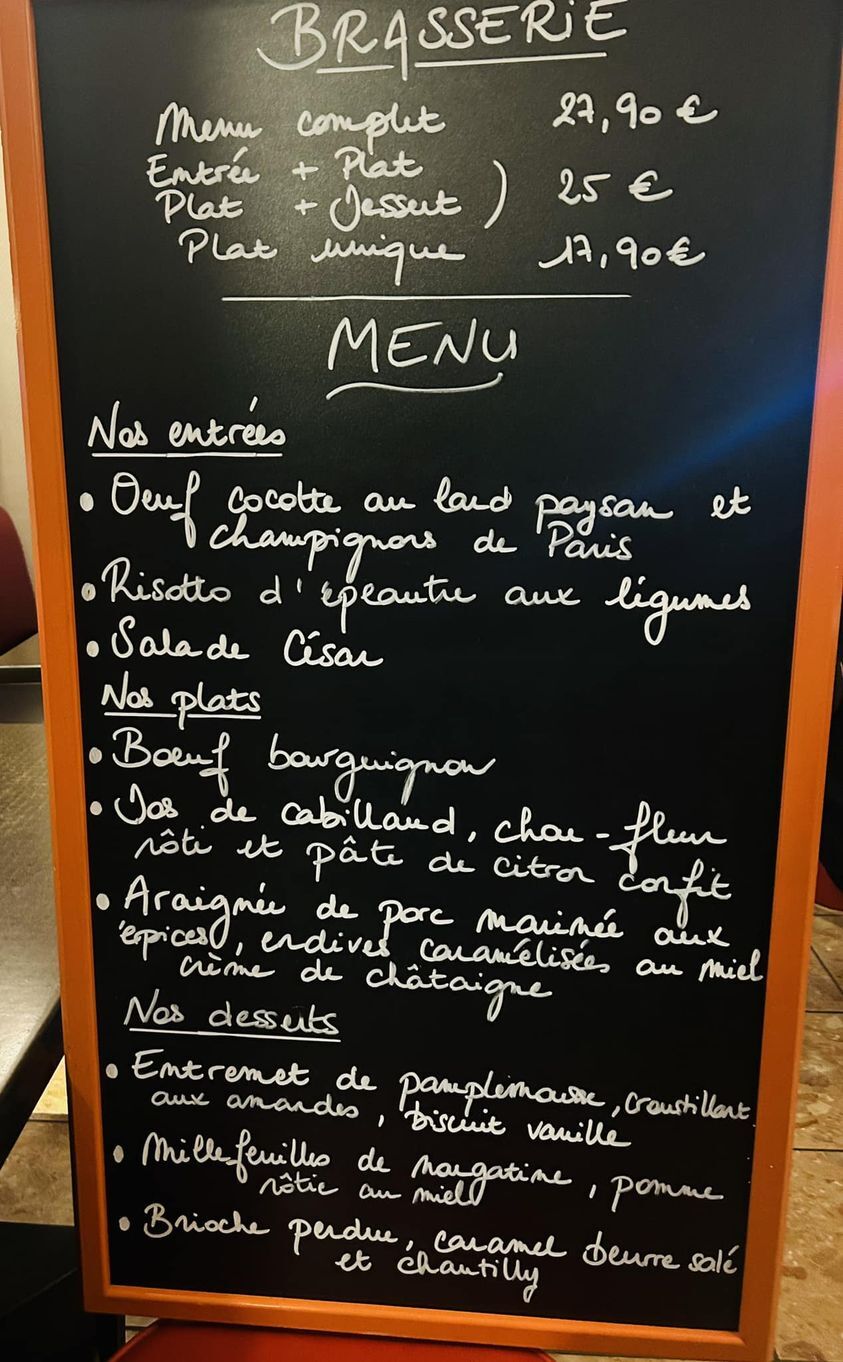 BRASSERiE
Menu complet 27,90 €
Entrée + Plat
Plat + Dessert ) 25 €
Plat unique 17,90€
MENU
Nos entrées
• Oeuf cocotte au lard paysan et
champignons de Paris
• Risotto d'épeautre aux légumes
• Salade César
Nos plats
• Boeuf bourguignon
• Dos de cabillaud, chou-fleur
rôti et pâte de citron confit
• Araignée de porc marinée aux
épices, endives caramélisées au miel
crème de châtaigne
Nos desserts
• Entremet de pamplemousse, croustillant
aux amandes, biscuit vanille
• Millefeuilles de nougatine, pomme
rôtie au miel
• Brioche perdue, caramel beurre salé
et chantilly